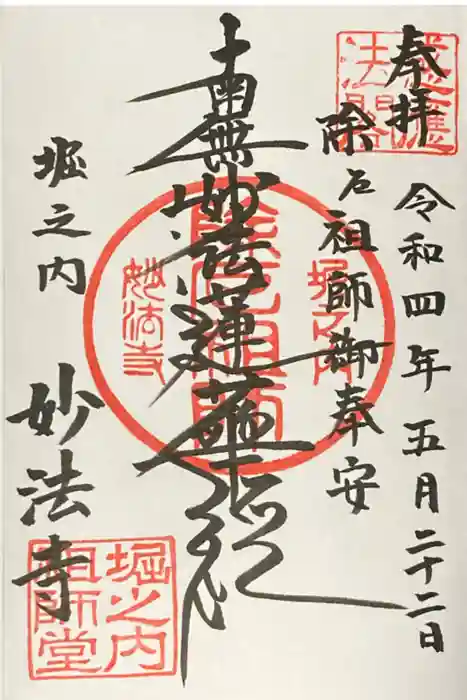 奉拝
令和四年五月二十二日
除厄祖師御奉安
南無妙法蓮華経
堀之内
妙法寺
堀之内
除厄祖師
妙法寺
堀之内
祖師堂